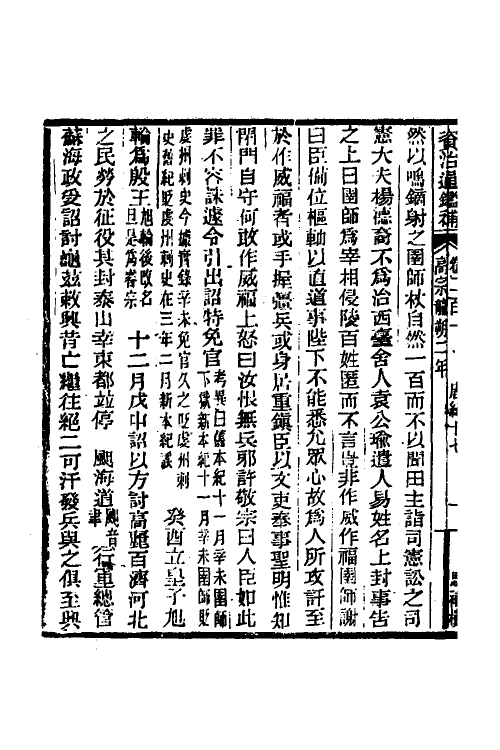 資治通鑑補 卷二百一 高宗龍朔二年 唐紀十七 一
然以鳴鏑射之圉師杖自然一百而不以聞田主詣司憲訟之司
憲大夫楊德裔不爲治西臺舍人袁公瑜遣人易姓名上封事告
之上曰圉師爲宰相侵陵百姓匿而不言豈非作威作福圉師謝
曰臣備位樞軸以直道事陛下不能悉允眾心故爲人所攻訐至
於作威福者或手握彊兵或身居重鎮臣以文吏奉事聖明惟知
閉門自守何敢作威福上怒曰汝恨無兵邪許敬宗曰人臣如此
罪不容誅遽令引出詔特免官考異曰舊本紀十一月辛未圉師下獄新本紀十一月辛未圉師貶
虔州刺史今據實錄辛未免官久之貶虔州刺史舊紀貶虔州刺史在三年二月新本紀誤 癸酉立皇子旭
輪爲殷王旭輪後改名旦是爲睿宗 十二月戊申詔以方討高麗百濟河北
之民勞於征役其封泰山幸東都竝停 颶海道颶音聿行軍總管
蘇海政受詔討龜茲敕興昔亡繼往絕二可汗發兵與之俱至興